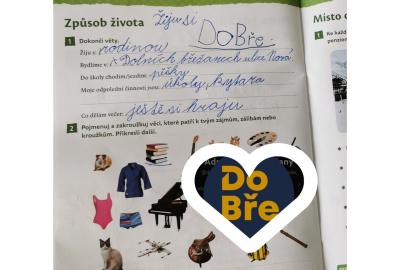 Způsob života
Žiju si DoBře.
Místo
1 Dokonči věty.
Žiju s rodinou
Bydlíme v Dolních Břežanech ulice Nová
Do školy chodím/jezdím pěšky
Moje odpolední činnosti jsou úkoly, kytara
Co dělám večer: ještě si hraju
2 Pojmenuj a zakroužkuj věci, které patří k tvým zájmům, zálibám nebo
kroužkům. Přikresli další.
Do
Bře
1 Ke každé